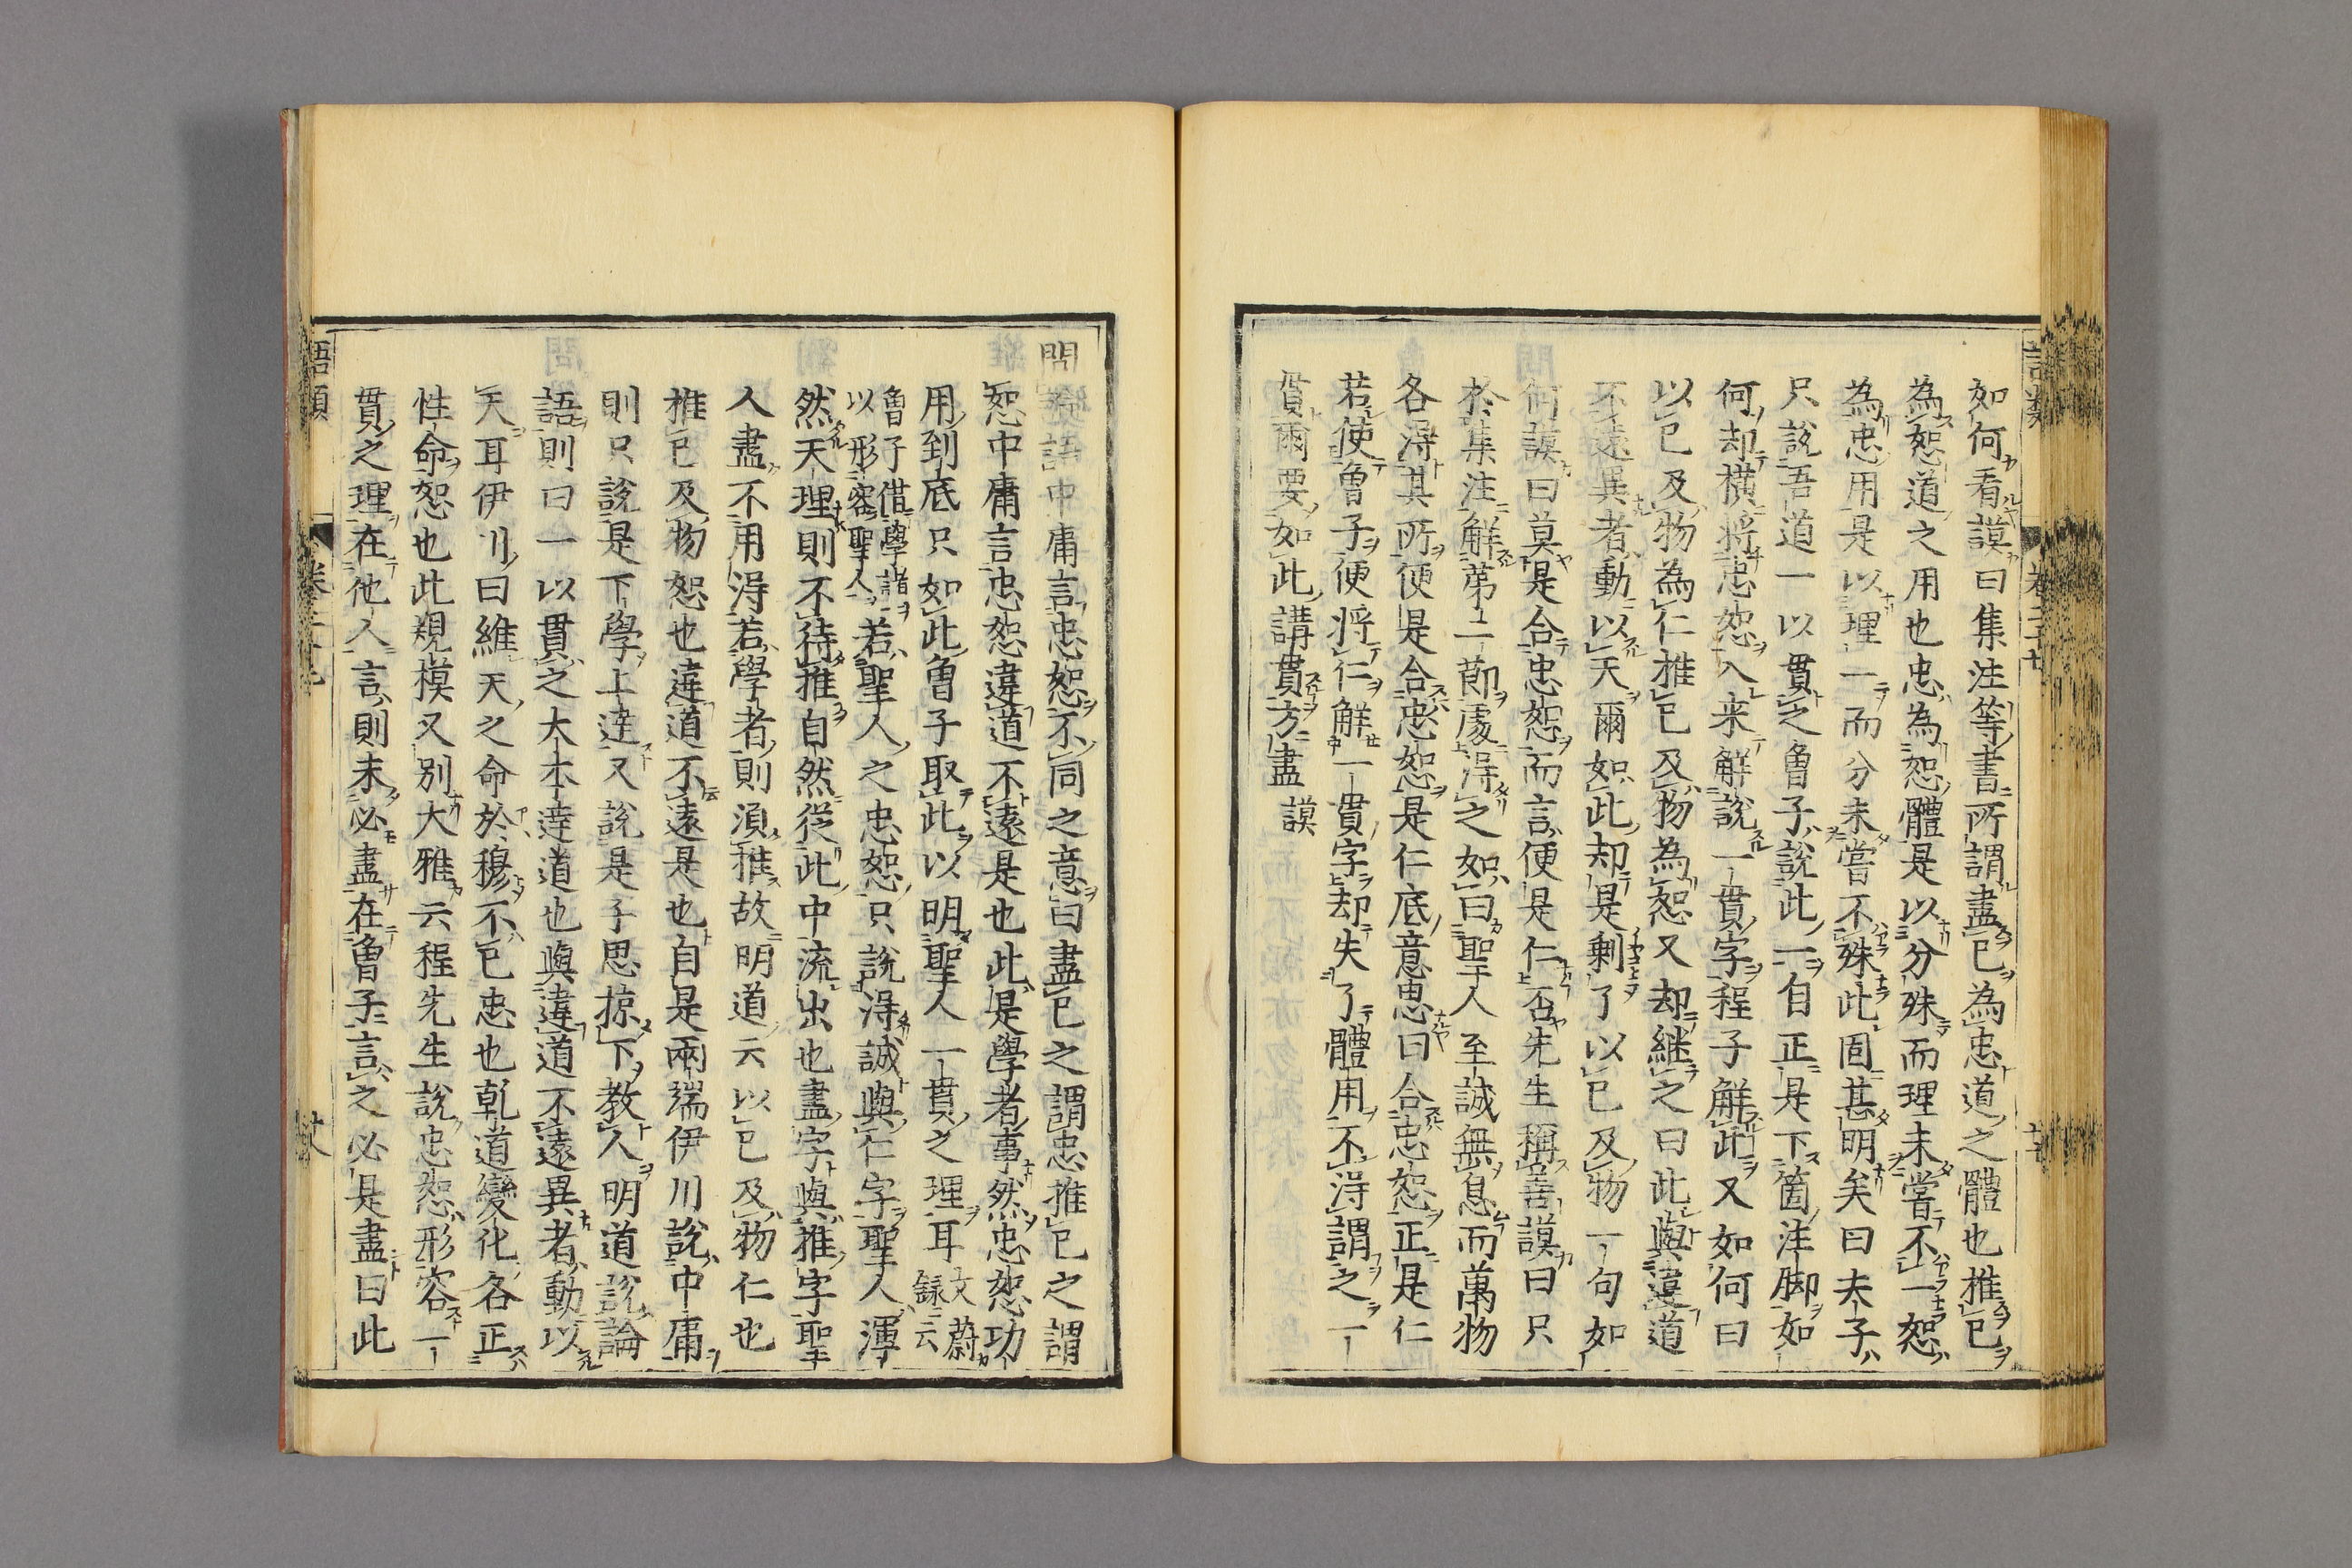 如何看謨曰集注等書所謂盡已為忠道之體也推已
為恕道之用也忠為恕體是以分殊而理未嘗不一恕
為忠用是以理一而分未嘗不殊此固甚明矣曰夫子
只說吾道一以貫之曽子說此一句正是下箇注脚如
何却橫將忠恕入来解說一貫字程子解此又如何曰
以已及物為仁推已及物為恕又却継之曰此與違道
不遠異者動以天爾如此却是剰了以已及物一句如
何謨曰莫是合忠恕而言便是仁否先生稱善謨曰只
於集注解第二節處淂之如曰聖人至誠無息而萬物
各淂其所便是合忠恕是仁底意思曰合忠恕正是仁
若使曽子便將仁解一貫字却失了體用不淂謂之一
貫爾要如此講貫方盡 謨
問論語中庸言忠恕不同之意曰盡已之謂忠推已之謂
恕中庸言忠恕違道不遠是也此是學者事然忠恕功
用到底只如此曽子取此以明聖人一貫之理耳 文蔚録云
曽子借學者以形容聖人 若聖人之忠恕只說淂誠與仁字聖人渾
然天理則不待推自然從此中流出也盡字與推字聖
人盡不用淂若學者則須推故明道云以已及物仁也
推已及物恕也違道不遠是也自是兩端伊川說中庸
則只說是下學上達又說是子思掠下教人明道說論
語則曰一以貫之大本達道也與違道不遠異者動以
天耳伊川曰維天之命於穆不已忠也乾道變化各正
性命恕也此規模又別大雅云程先生說忠恕形容一
貫之理在他人言則未必盡在曽子言之必是盡曰此
語類